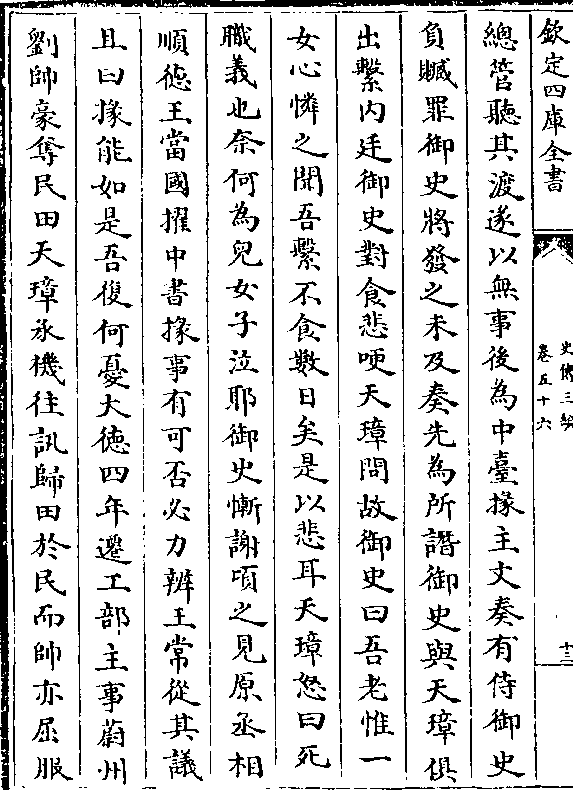 欽定四庫全書
史傳三編
卷五十六
十三
總管聽其渡遂以無事後為中臺掾主文奏有侍御史
負贓罪御史將發之未及奏先為所譖御史與天璋俱
出繫内廷御史對食悲哽天璋問故御史曰吾老惟一
女心憐之聞吾繫不食數日矣是以悲耳天璋怒曰死
職義也奈何為兒女子泣耶御史慚謝頃之見原丞相
順德王當國擢中書掾事有可否必力辨王常從其議
且曰掾能如是吾復何憂大德四年遷工部主事蔚州
劉帥豪奪民田天璋承機往訊歸田於民而帥亦屈服